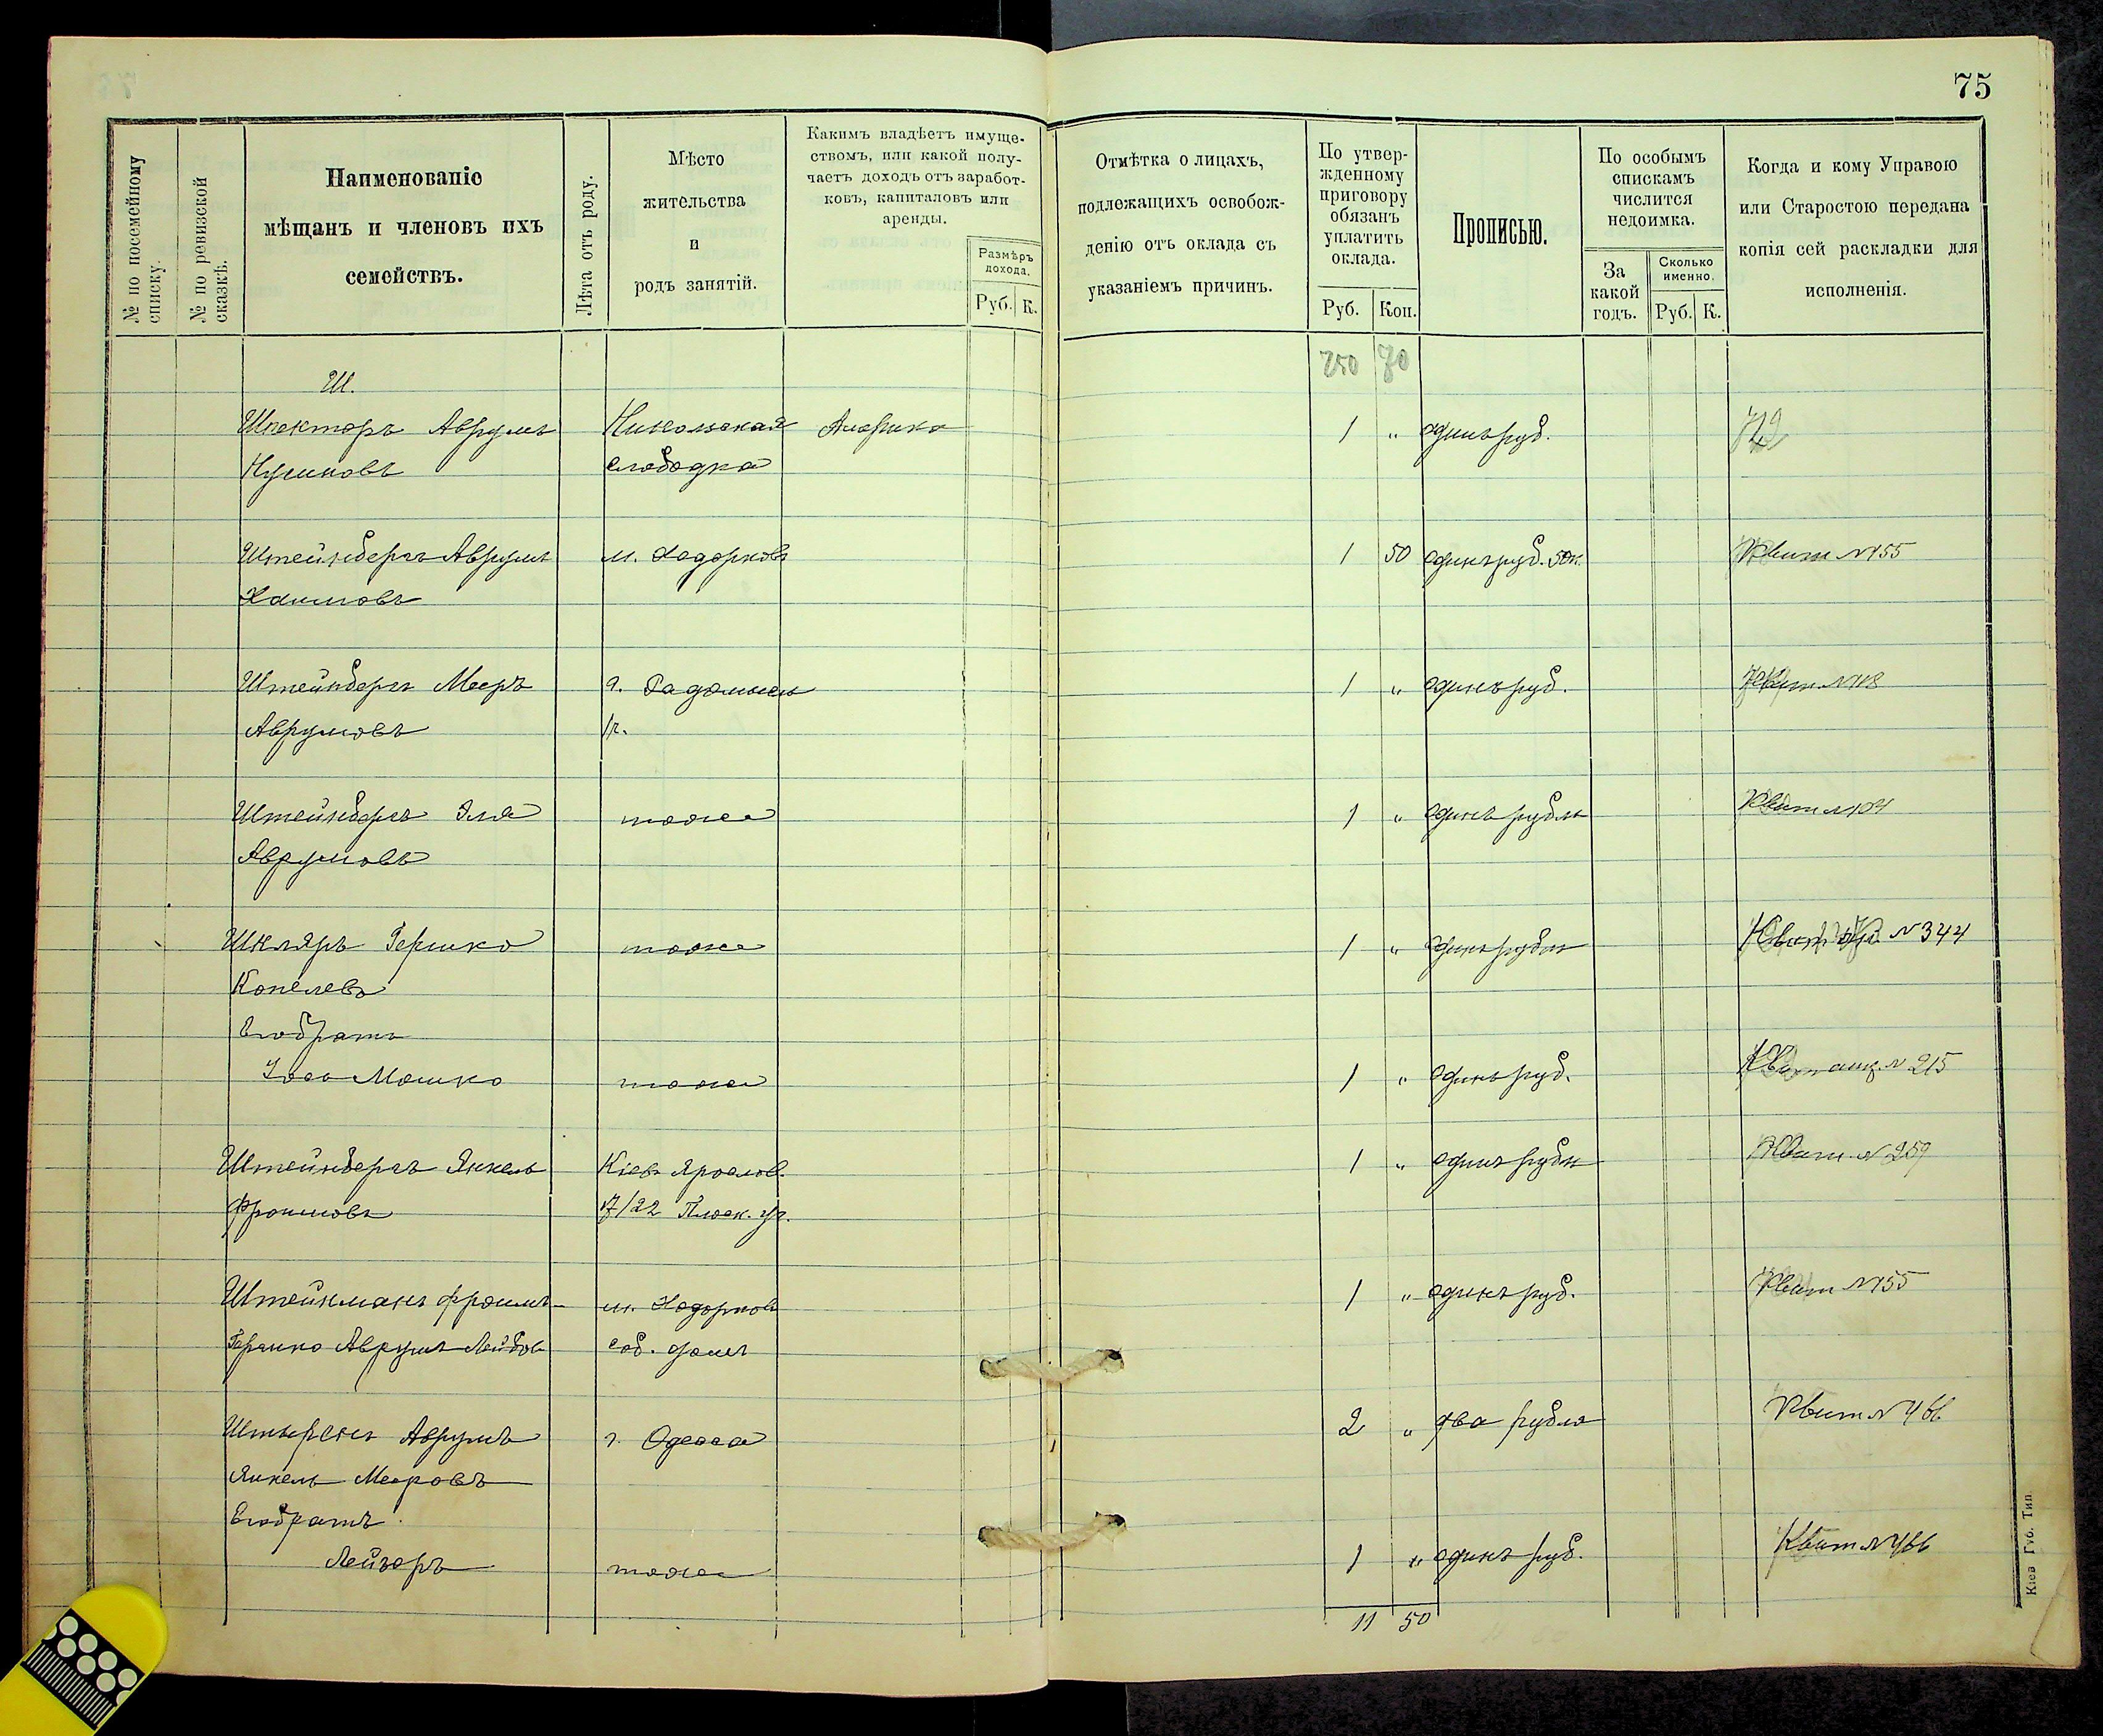 75
№ по посемейному списку.
№ по ревизской сказкѣ.
Наименованіе
мѣщанъ и членовъ ихъ
семействъ.
Лѣта отъ роду.
Мѣсто
жительства
и
родъ занятій.
Какимъ владѣетъ имуще-
ствомъ, или какой полу-
чаетъ доходъ отъ заработ-
ковъ, капиталовъ или
аренды.
Размѣръ
дохода.
Руб. К.
Отмѣтка о лицахъ,
подлежащихъ освобож-
денію отъ оклада съ
указаніемъ причинъ.
По утвер-
жденному
приговору
обязанъ
уплатить
оклада.
Руб. Коп.
Прописью.
По особымъ
спискамъ
числится
недоимка.
За
какой
годъ.
Сколько
именно.
Руб. К.
Когда и кому Управою
или Старостою передана
копія сей раскладки для
исполненія.
Ш.
Шпекторъ Аврумъ Никольская Америка 1 " одинъ руб.
слободка
Штейнбергъ Аврумъ м. Ходорковъ 1 50 одинъ руб. 50 к. Квит №155
Хаимовъ
Штейнбергъ Мееръ г. Радомысль 1 " одинъ руб.
Аврумовъ
Штейнбергъ Эля тоже 1 " одинъ рубль
Аврумовъ
Шкляръ Гершко тоже 1 " одинъ рубль №344
Копелевъ
Его братъ
Мошко тоже 1 " одинъ руб. Квитанц. №215
Штейнбергъ Янкель Кіевъ Ярослав. 1 " одинъ рубль Квит. №259
Фроимовъ 17/22 Плоск. уч.
Штейнманъ Фроимъ- м. Ходорковъ 1 " одинъ руб. Квит №155
Гершко Аврумъ Лейбов. соб. домъ
Аврумъ г. Одесса 2 " два рубля Квит №466
Янкель Мееровъ
Его братъ.
Лейзоръ тоже 1 " одинъ руб. Квит №466
11 50
Кіев Губ. Тип.